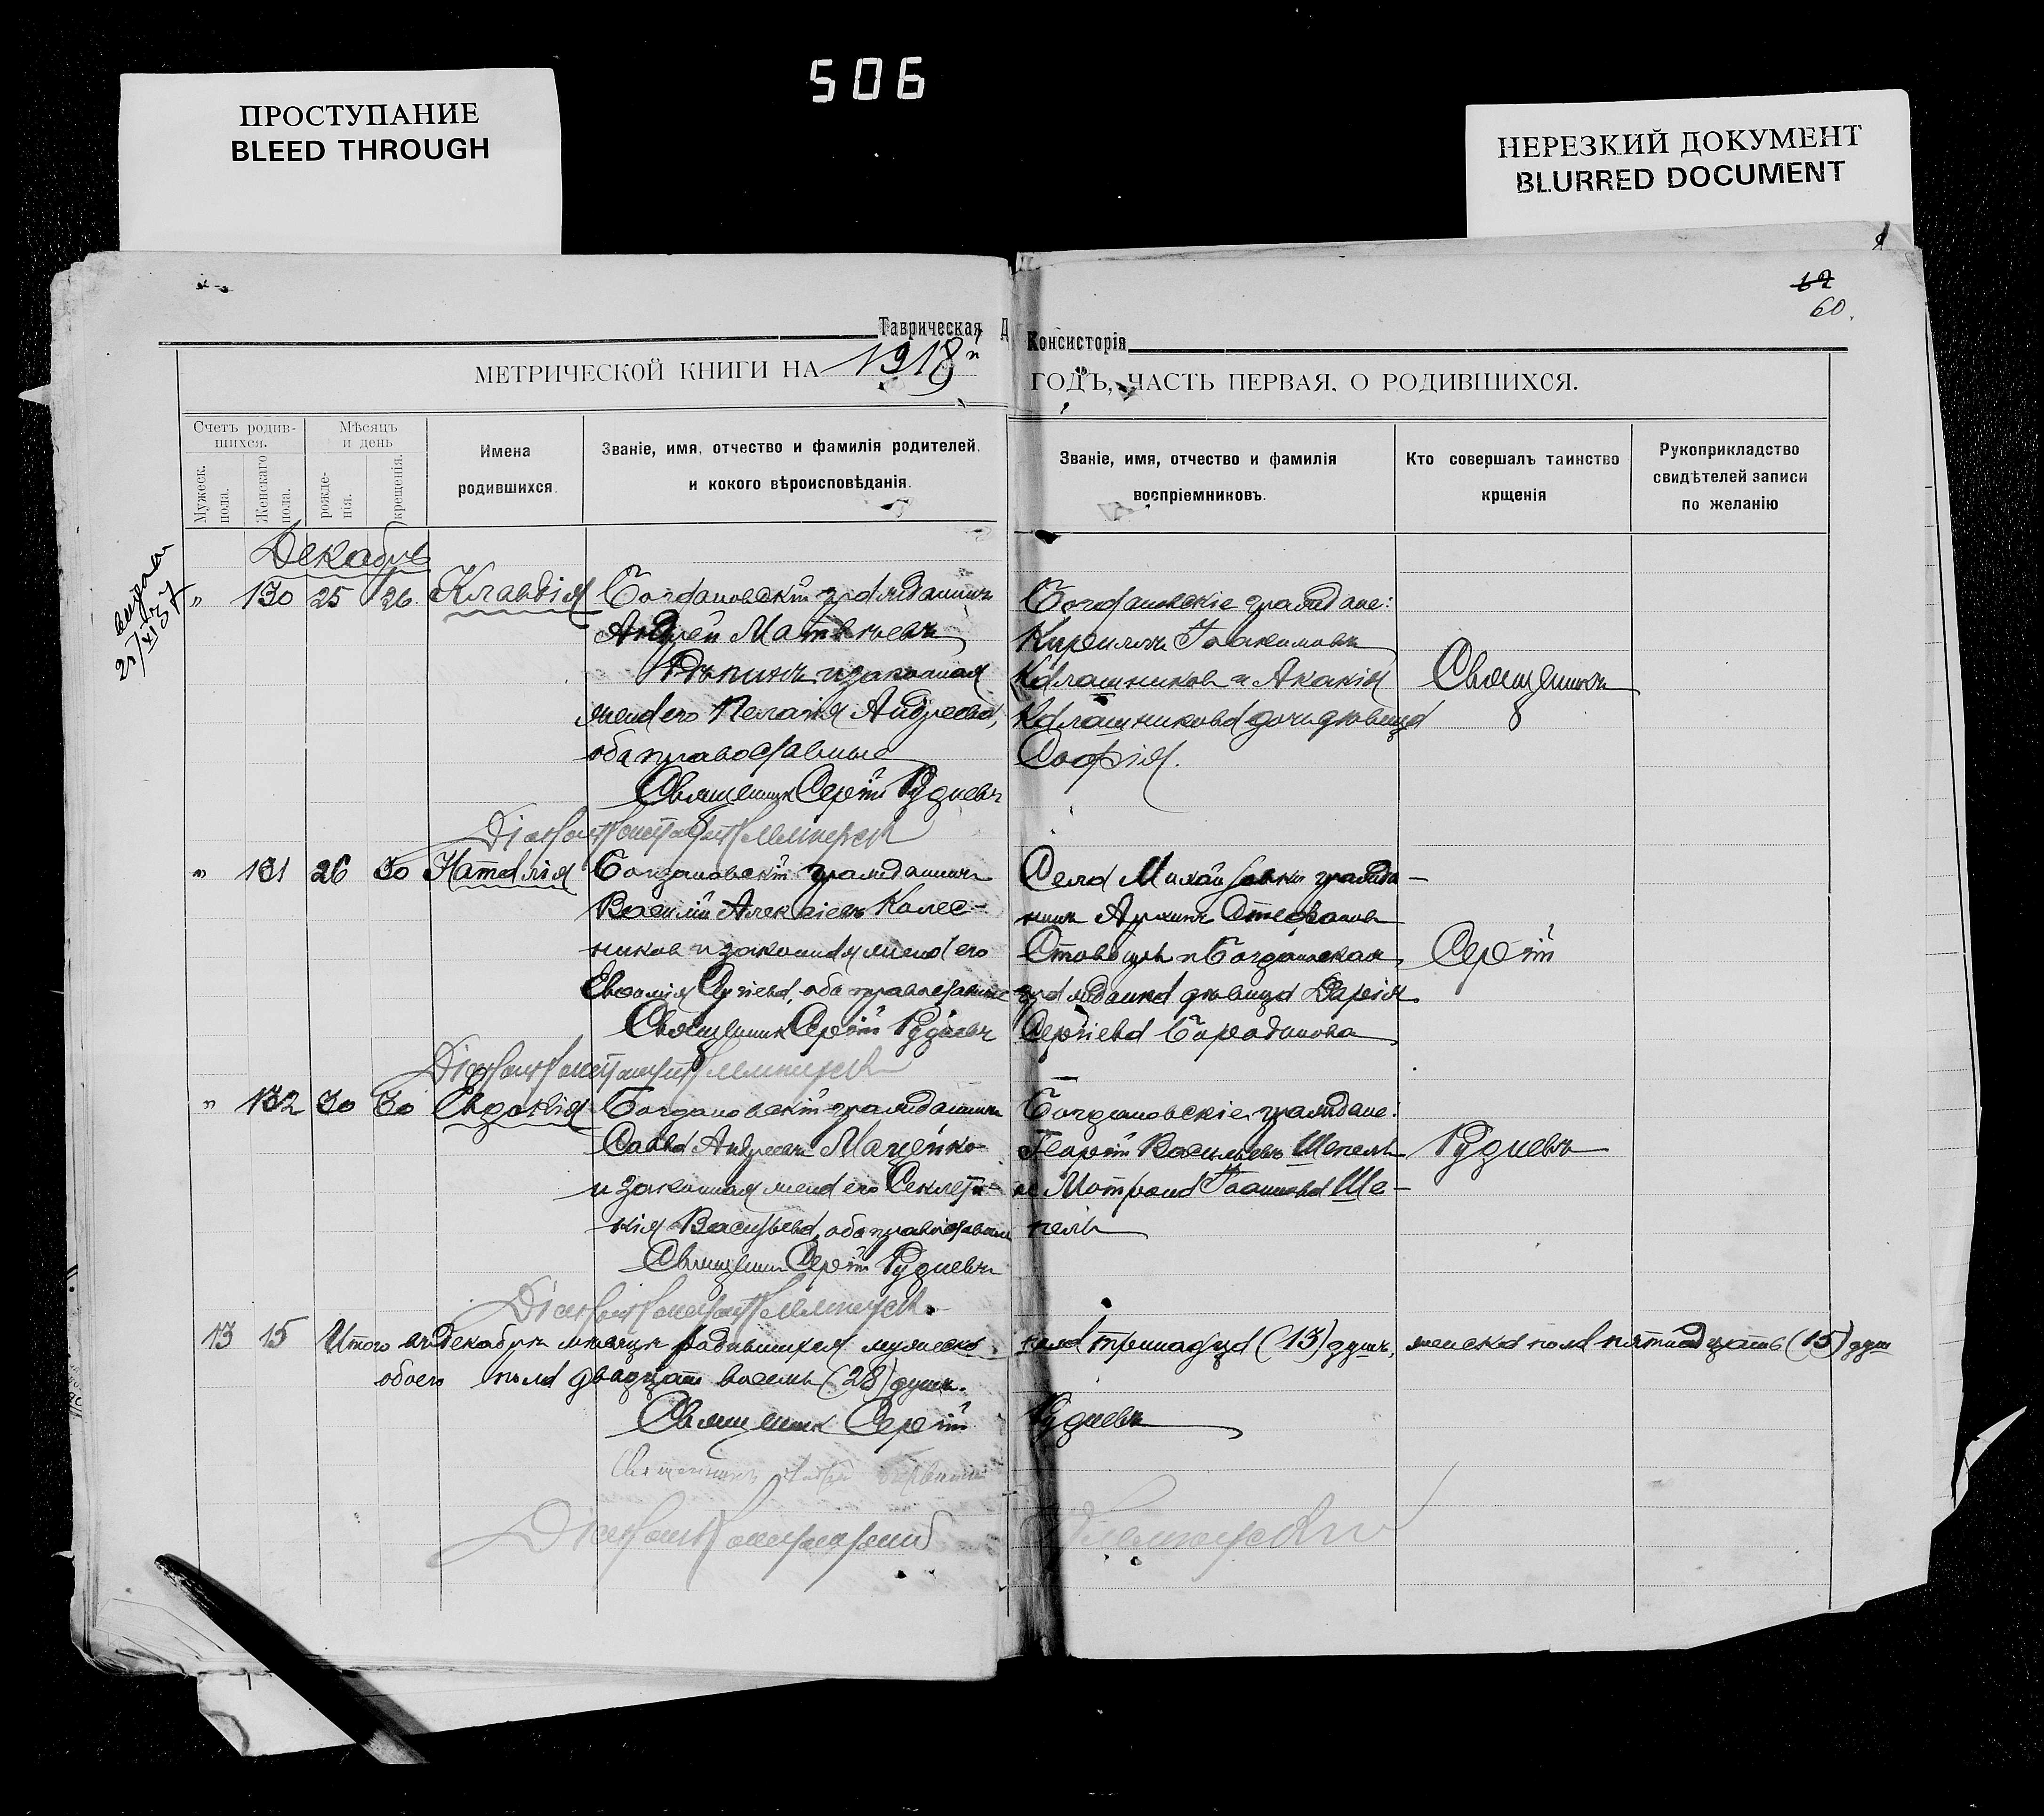 506
ПРОСТУПАНИЕ
BLEED THROUGH
НЕРЕЗКИЙ ДОКУМЕНТ
BLURRED DOCUMENT
62
60.
Таврическая Д Консисторія
МЕТРИЧЕСКОЙ КНИГИ НА 1918 ГОДЪ, ЧАСТЬ ПЕРВАЯ. О РОДИВШИХСЯ.
Счетъ родив-
шихся.
Мужеск.
пола.
Женскаго
пола.
Мѣсяцъ
и день
рожде-
нія.
крещенія.
Имена
родившихся.
Званіе, имя, отчество и фамилія родителей.
и кокого вѣроисповѣданія.
Званіе, имя, отчество и фамилія
воспріемниковъ.
Кто совершалъ таинство
крщенія
Рукоприкладство
свидѣтелей записи
по желанію
Декабрь
" 130 25 26 Клавдія
Богдановскій гражданинъ
Андрей Матвѣевъ
Рѣпинъ и законная
жена его Пелагія Андреева,
оба православные
Священникъ Сергій Рудневъ
Діаконъ Константинъ
Богдановскіе граждане:
Кириллъ Іоакимовъ
Калашниковъ и Акакія
Калашникова дочь дѣвица
Софія.
Священникъ
" 131 26 30 Наталія
Богдановскій гражданинъ
Василій Алексіевъ Колес-
никовъ и законная жена его
Евфимія Сергіева, оба православные
Священникъ Сергій Рудневъ
Діаконъ Константинъ
Села Михайловки гражда-
нинъ Архипъ Стефановъ
и Богдановская
гражданка дѣвица Дарія
Сергіева Бородинова
Сергій
" 132 30 30 Евдокія
Богдановскій гражданинъ
Савва Андреевъ Маценко
и законная жена его Секлети-
кія Васильева, оба православные
Священникъ Сергій Рудневъ
Діаконъ Константинъ
Богдановскіе граждане:
Георгій Васильевъ Шепель
и Матрона Іоаннова Ше-
пель
Рудневъ
13 15 Итого въ Декабрѣ мѣсяцѣ родившихся мужеска пола тринадцат (13) душъ, женска пола пятнадцать (15) душ
обоего пола двадцать восемь (28) душъ.
Священникъ Сергій Рудневъ
Священникъ
Діаконъ Константинъ